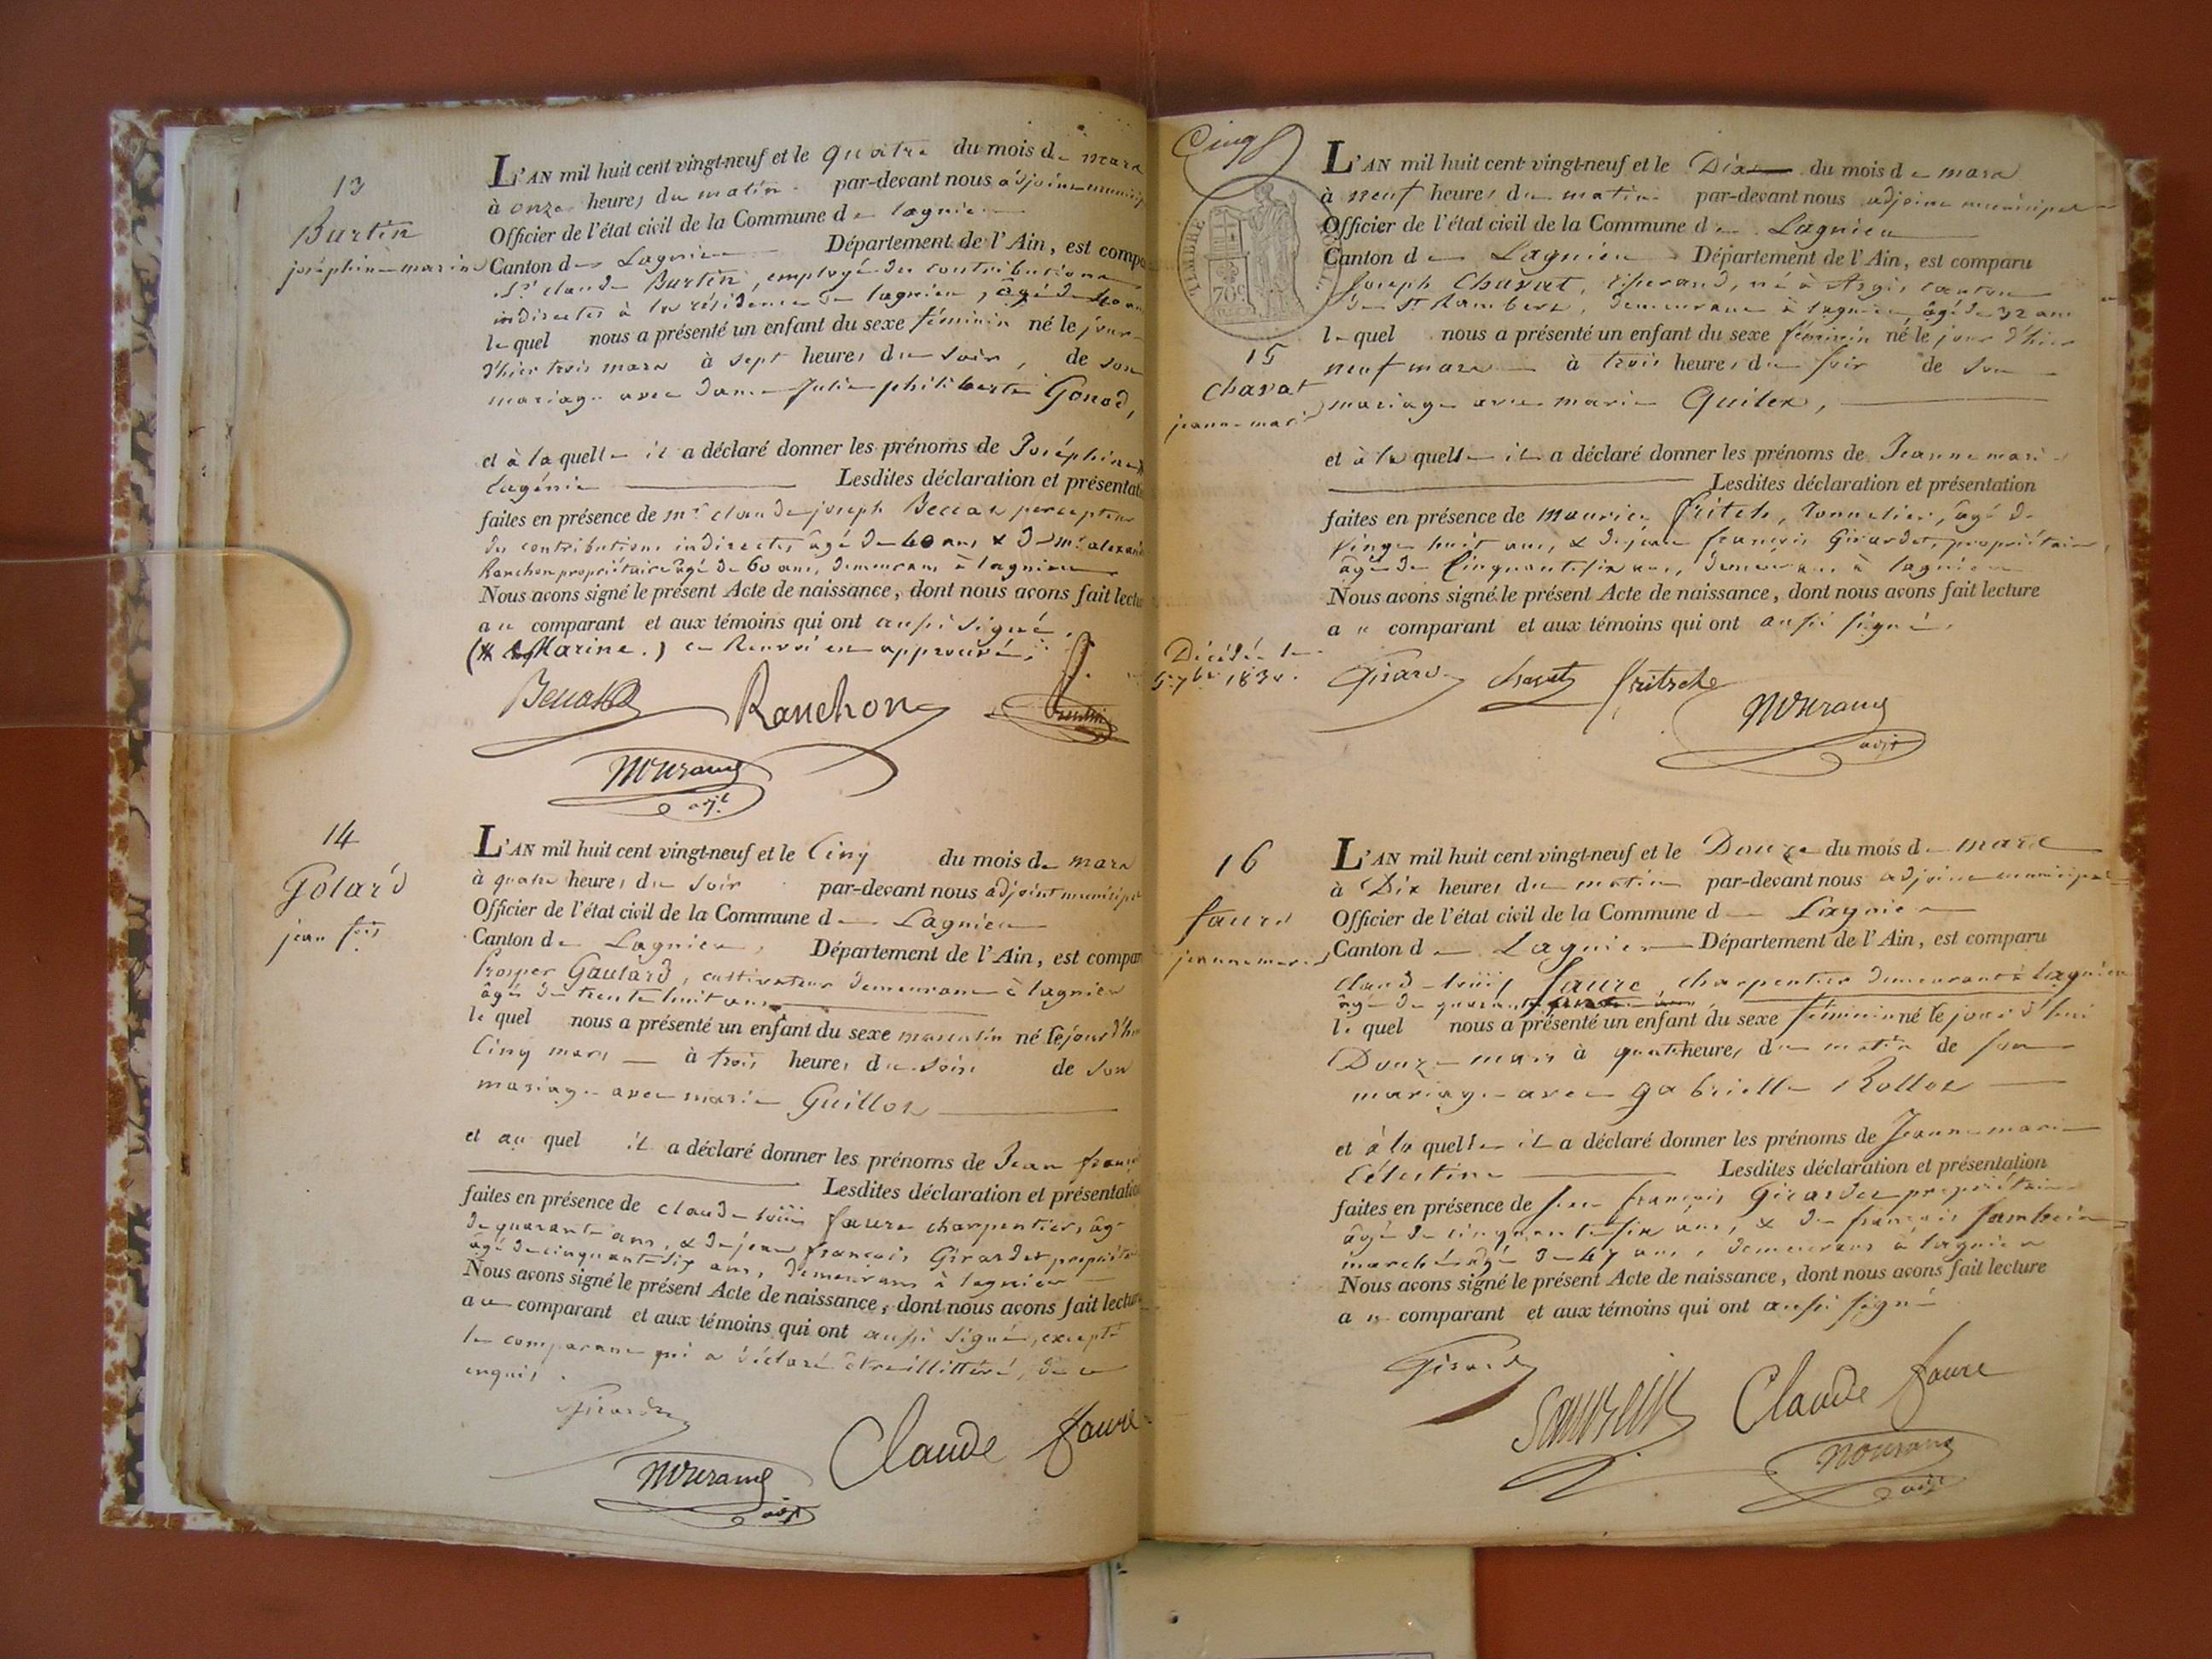 13
Burtin
joséphine marine
L'AN mil huit cent vingt-neuf et le quatre du mois de mars
à onze heures du matin par-devant nous adjoint municip
Officier de l'état civil de la Commune de lagnieu
Canton de Lagnieu Département de l'Ain, est compa
Sr claude Burtin, employé des contributions
indirectes à la résidence de lagnieu, âgé de 40 an
lequel nous a présenté un enfant du sexe féminin né le jour
d'hier trois mars à sept heures du soir, de son
mariage avec dame Julie philiberte Gonod,
et à laquelle il a déclaré donner les prénoms de Joséphine
Eugénie Lesdites déclaration et présentat
faites en présence de mr claude joseph percepteur
des contributions indirectes âgé de 40 ans & de mr alexan
Ranchon propriétaire âgé de 60 ans, demeurans à lagnieu
Nous avons signé le présent Acte de naissance, dont nous avons fait lectu
au comparant et aux témoins qui ont aussi signé.
(# Marine.) ce Renvoi est approuvé.
Ranchon Burtin
adjt
14
Golard
jean fois
L'AN mil huit cent vingt-neuf et le Cinq du mois de mars
à quatre heures du soir par-devant nous adjoint municipal
Officier de l'état civil de la Commune de Lagnieu
Canton de Lagnieu, Département de l'Ain, est compar
Prosper Gaulard, cultivateur demeurant à lagnieu
âgé de trente huit ans
lequel nous a présenté un enfant du sexe masculin né le jour d'hui
Cinq mars à trois heures du soir de son
mariage avec marie Guillot
et auquel il a déclaré donner les prénoms de Jean françois
Lesdites déclaration et présentation
faites en présence de claude faure charpentier, âgé
de quarante ans, & de jean françois Girardet propriétai
âgé de cinquante six ans, demeurans à lagnieu
Nous avons signé le présent Acte de naissance, dont nous avons fait lecture
au comparant et aux témoins qui ont aussi signé, excepté
le comparant qui a déclaré être illittéré, de ce
enquis.
Girardet
Claude faure
adjt
Cinq
TIMBRE ROYAL
70c
15
Chavat
jeanne marie
L'AN mil huit cent vingt-neuf et le Dix du mois de mars
à neuf heures du matin par-devant nous adjoint municipal
Officier de l'état civil de la Commune de Lagnieu
Canton de Lagnieu Département de l'Ain, est comparu
Joseph Chavat, tisserand, né à Argis canton
de St Rambert, demeurant à lagnieu, âgé de 32 ans
lequel nous a présenté un enfant du sexe féminin né le jour d'hier
neuf mars à trois heures du soir de son
mariage avec marie
et à laquelle il a déclaré donner les prénoms de Jeanne marie
Lesdites déclaration et présentation
faites en présence de maurice fritch, tonnelier, âgé de
vingt huit ans, & de jean françois Girardet, propriétaire,
âgé de Cinquante six ans, demeurans à lagnieu
Nous avons signé le présent Acte de naissance, dont nous avons fait lecture
au comparant et aux témoins qui ont aussi signé.
Décédée le
7bre
Chavat fritsche
adjt
16
faure
jeanne marie
L'AN mil huit cent vingt-neuf et le Douze du mois de mars
à Dix heures du matin par-devant nous adjoint municipal
Officier de l'état civil de la Commune de Lagnieu
Canton de Lagnieu Département de l'Ain, est comparu
Claude faure, charpentier demeurant à lagnieu
âgé de quarante
lequel nous a présenté un enfant du sexe féminin né le jour d'hui
Douze mars à quatre heures du matin de son
mariage avec gabrielle Rollot
et à laquelle il a déclaré donner les prénoms de Jeanne marie
Célestine Lesdites déclaration et présentation
faites en présence de jean françois Girardet propriétaire
âgé de cinquante six ans, & de françois
âgé de 47 ans, demeurans à lagnieu
Nous avons signé le présent Acte de naissance, dont nous avons fait lecture
au comparant et aux témoins qui ont aussi signé
Claude faure
adjt